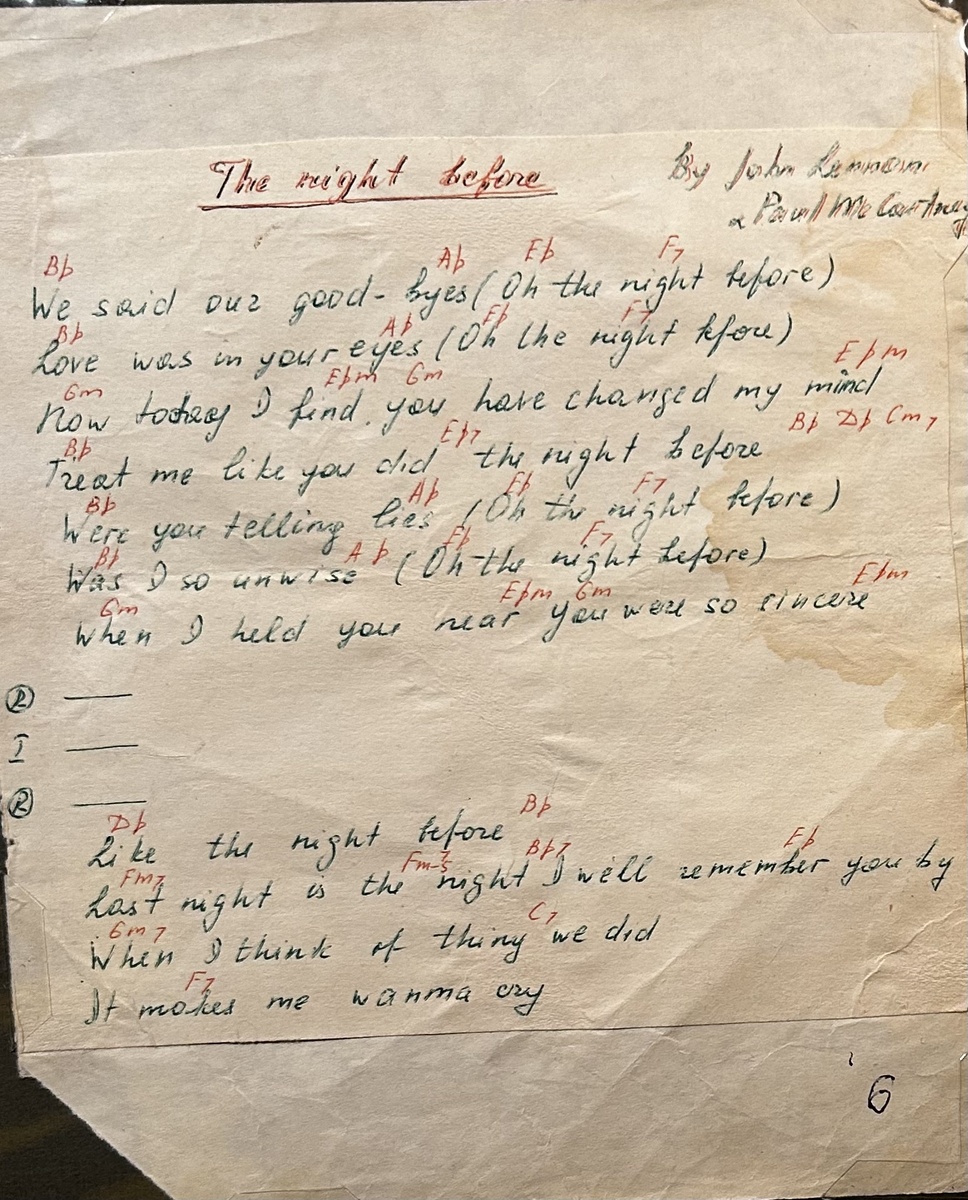 The night before
By John Lennon
& Paul McCartney
Bb Ab Eb F7
We said our good-byes (Oh the night before)
Bb Ab Eb F7
Love was in your eyes (Oh the night before)
Gm Ebm Gm Ebm
Now today I find, you have changed my mind
Bb Eb7 Bb Db Cm7
Treat me like you did the night before
Bb Ab Eb F7
Were you telling lies (Oh the night before)
Bb Ab Eb F7
Was I so unwise (Oh the night before)
Gm Ebm Gm Ebm
When I held you near you were so sincere
Ⓡ ——
I ——
Ⓡ ——
Db Bb
Like the night before
Fm7 Fm7-5 Bb7 Eb
Last night is the night I well remember you by
Gm7 C7
When I think of thing we did
F7
It makes me wanna cry
6